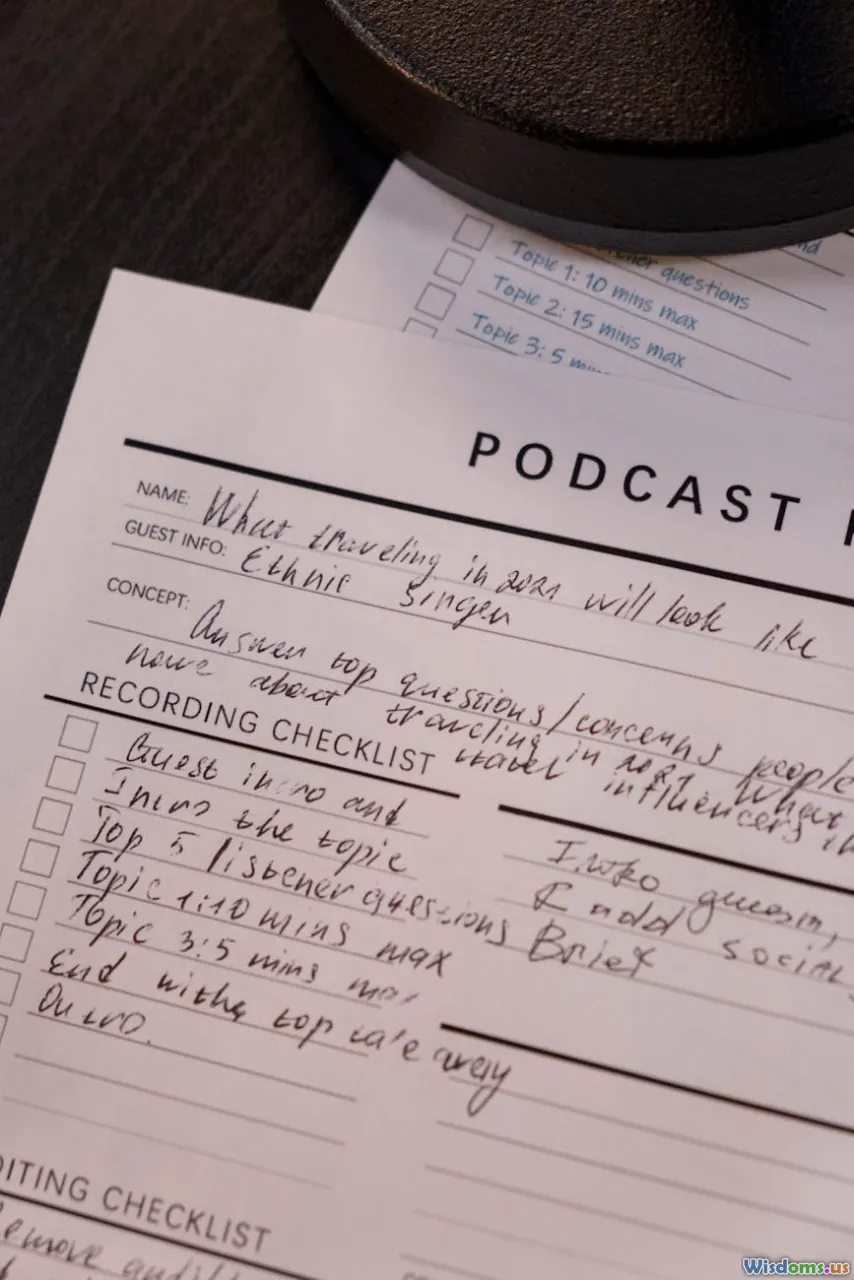 listener questions
Topic 1: 10 mins max
Topic 2: 15 mins max
Topic 3: 5 mins
PODCAST
NAME: What traveling in 2021 will look like
GUEST INFO: Ethnic Singer
CONCEPT: Answer top questions/concerns people
have about traveling in 2021. What
travel influencers
RECORDING CHECKLIST
Guest intro and
Intro the topic
Top 5 listener questions
Topic 1:10 mins max
Topic 3:5 mins max
End with a top take away
Outro.
Intro
& add social
Brief
DITING CHECKLIST
Remove
Wisdoms.us